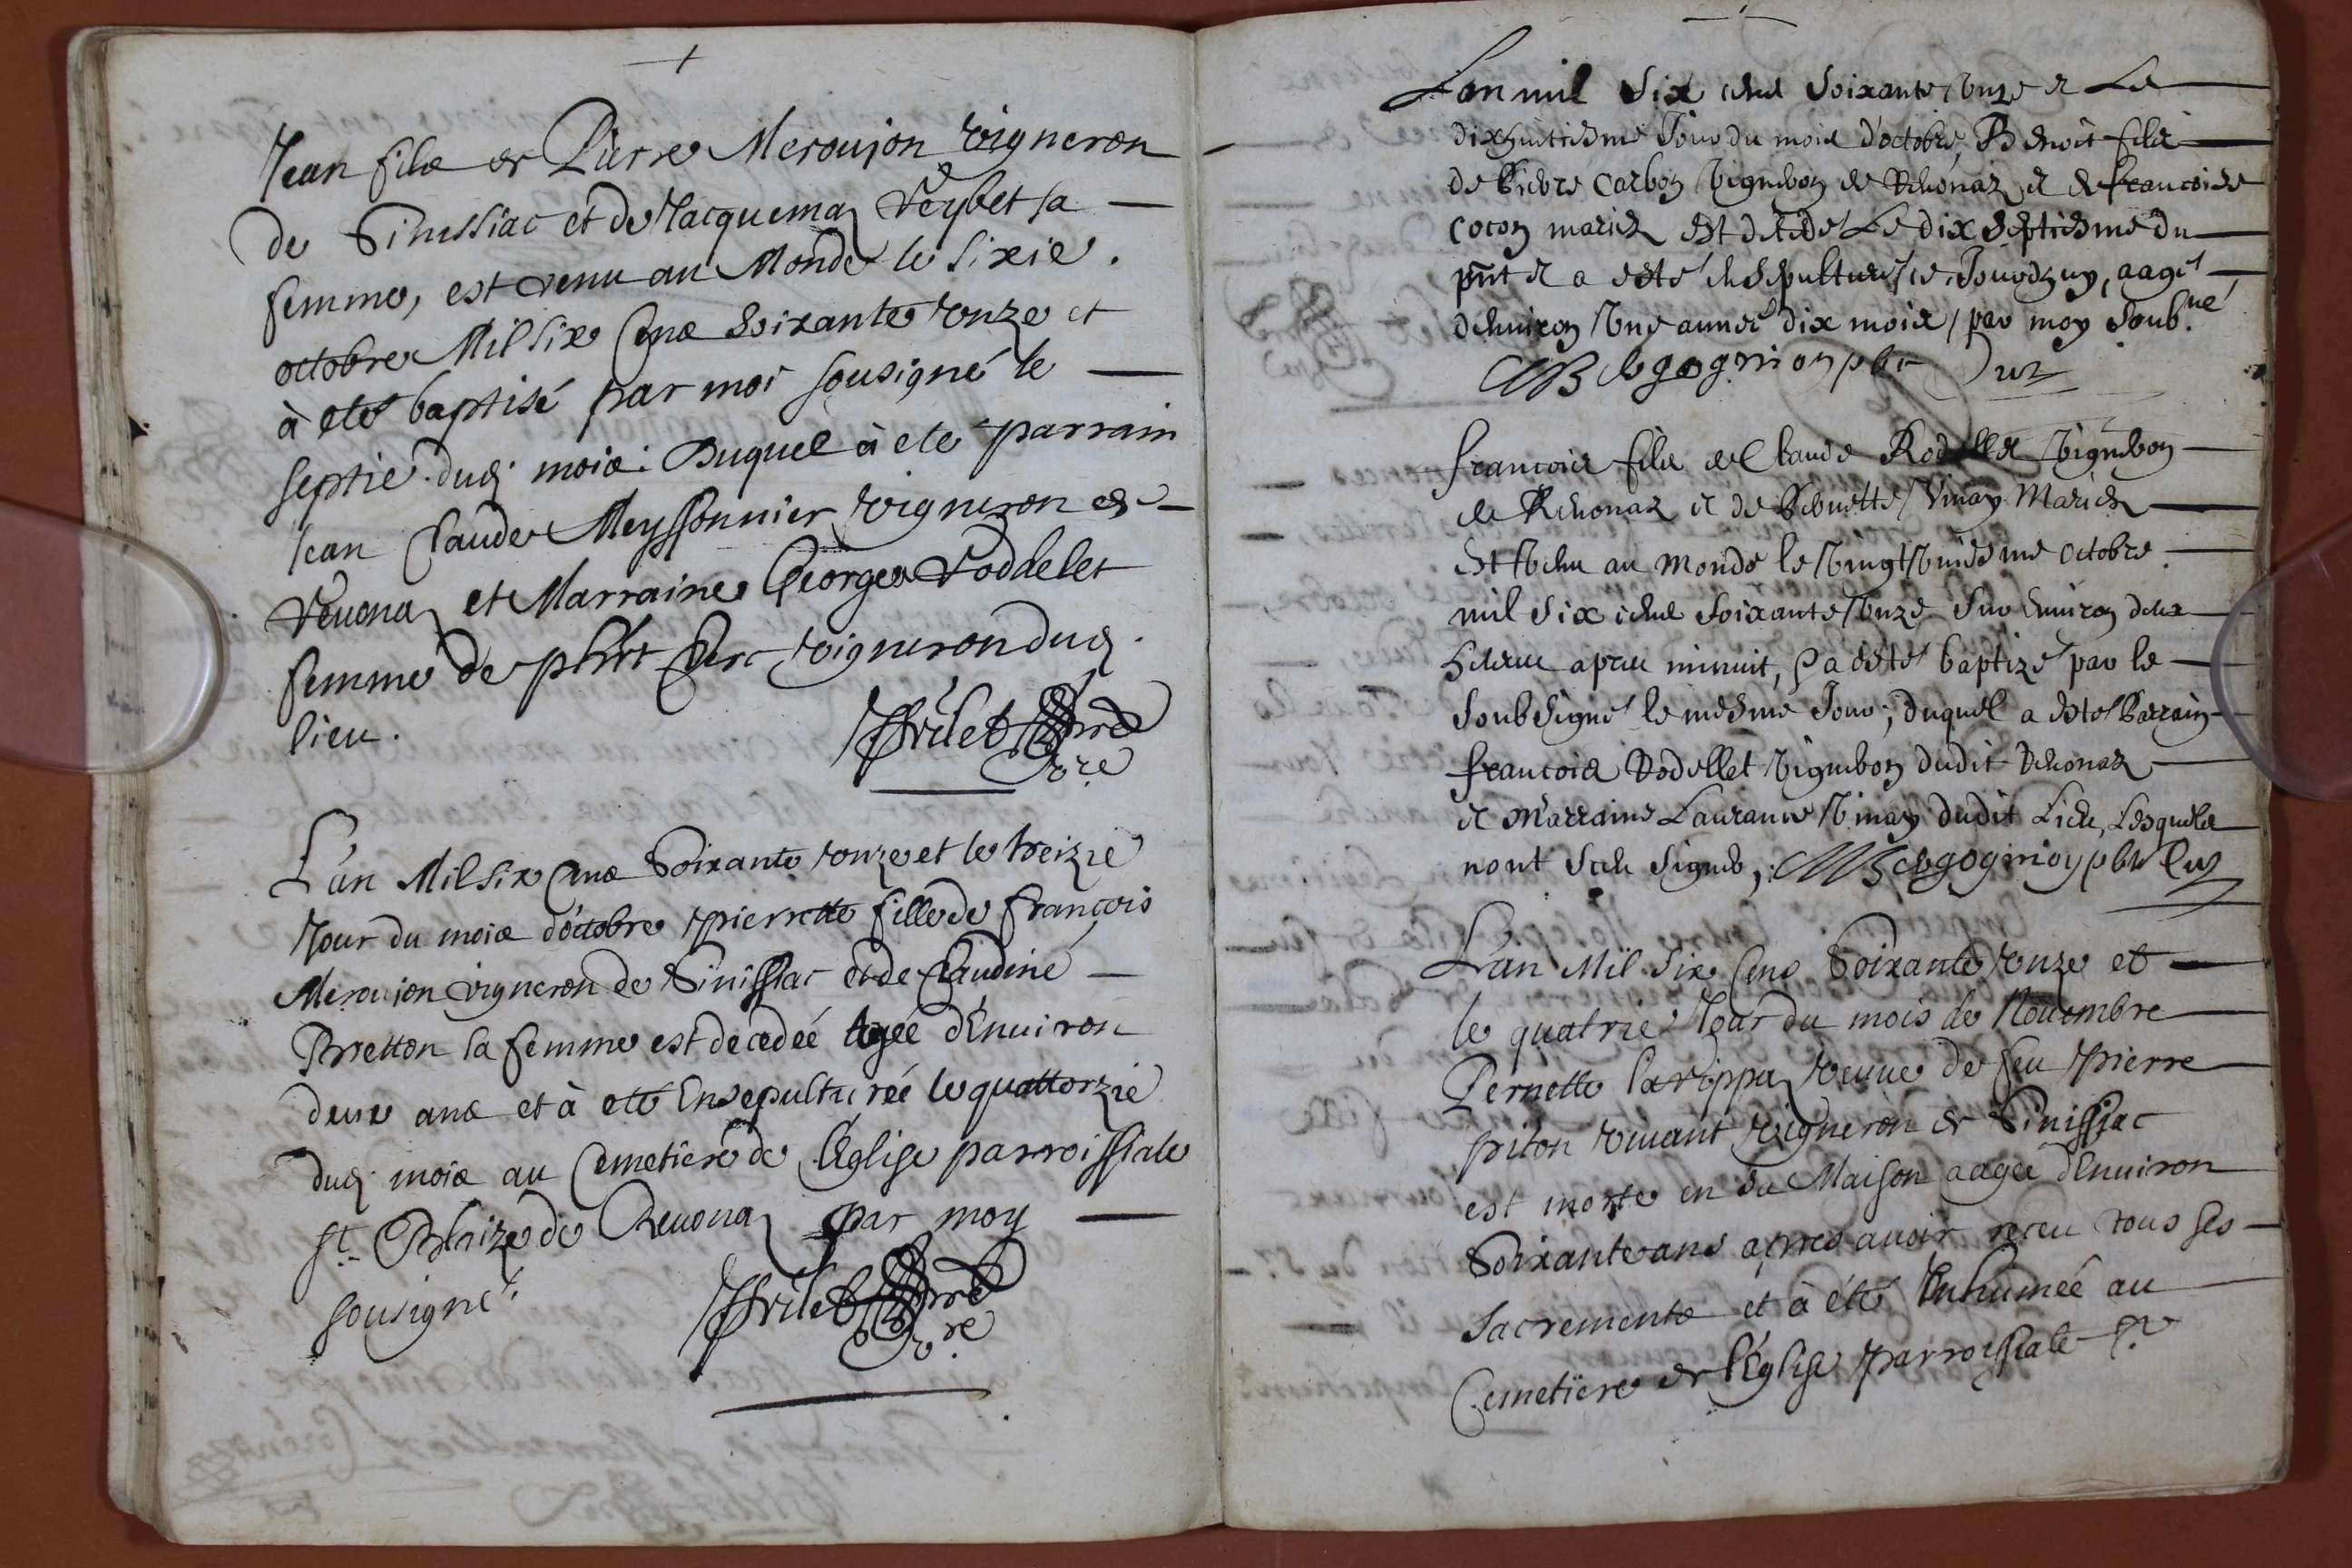 Jean fils de Pierre Meroujon vigneron
de Sinissiac et de Jacquema Veybet sa
femme, est venu au Monde le sixie.
octobre Mil six Cens Soixante vonze et
à eté baptisé par moi sousigné le
septie. dud. mois. Duquel à eté parrain
Jean Claude Meyssonnier vigneron de
Revonaz et Marraine George Roddelet
femme de phbt Clerc vigneron dud.
lieu.
L'an Mil six Cens Soixante vonze et le treizie
Jour du mois d'octobre pierrette fille de françois
Meroujon vigneron de Sinissiac et de Claudine
Bretton sa femme est decedée Agée d'Enuiron
deux ans et à eté Ensepulturée le quattorzie
dud. mois au Cemetiere de l'Eglise parroissiale
st. Blaize de Reuonaz par moy
sousigné.
L'an mil six cens soixante vnze & Le
dixhuictiesme Jour du mois d'octobre, Benoit fils
de Pierre Carbon vigneron de Reuonaz & de francoise
Cocon mariez est decedé Le dix septiesme du
pnt & a esté ensepulturé ce Jourdhuy, aagé
denuiron vne année dix mois, par moy soubné.
francois fils de Claude Rodellet vigneron
de Reuonaz et de Pernette Vinay Mariez
est venu au monde le vingt vniesme octobre
mil six cens soixante vnze sur Enuiron deux
heures apres minuit, & a esté baptizé par le
soubsigné le mesme Jour, duquel a esté Parrain
francois Rodellet vigneron dudit Reuonaz
et Marraine Laurance Vinay dudit Lieu, Lesquels
nont sceu signer,
L'an Mil. six Cens Soixante vonze et
le quatrie. Jour du mois de Nouembre
Pernette Larippaz veuue de feu pierre
piton viuant vigneron de Sinissiac
est morte en sa Maison aagée d'Enuiron
Soixante ans apres auoir receu tous ses
Sacrements et à été Inhumée au
Cemetiere de l'Eglise parroissiale St.